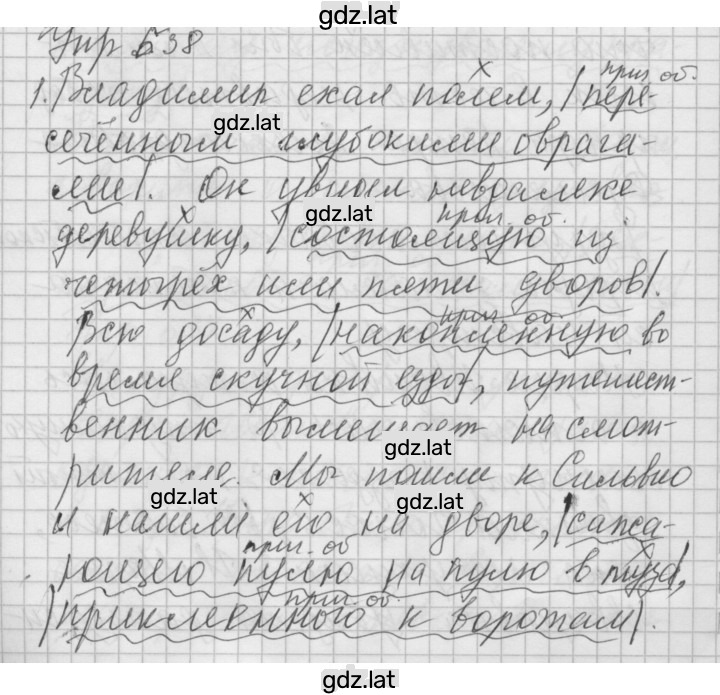 gdz.lat
Упр 538
прич. об.
1. Владимир ехал полем, |пере-
сечённым глубокими оврага-
gdz.lat
ми|. Он увидел невдалеке
gdz.lat
прич. об.
деревушку, |состоящую из
четырёх или пяти дворов|.
прич. об.
Всю досаду, |накопленную во
время скучной езды|, путешест-
венник вымещает на смот-
gdz.lat
рителе. Мы пошли к Сильвио
gdz.lat
gdz.lat
и нашли его на дворе, |сажа-
прич. об
ющего пулю на пулю в туза|,
прич. об.
|приклеенного к воротам|.
gdz.lat